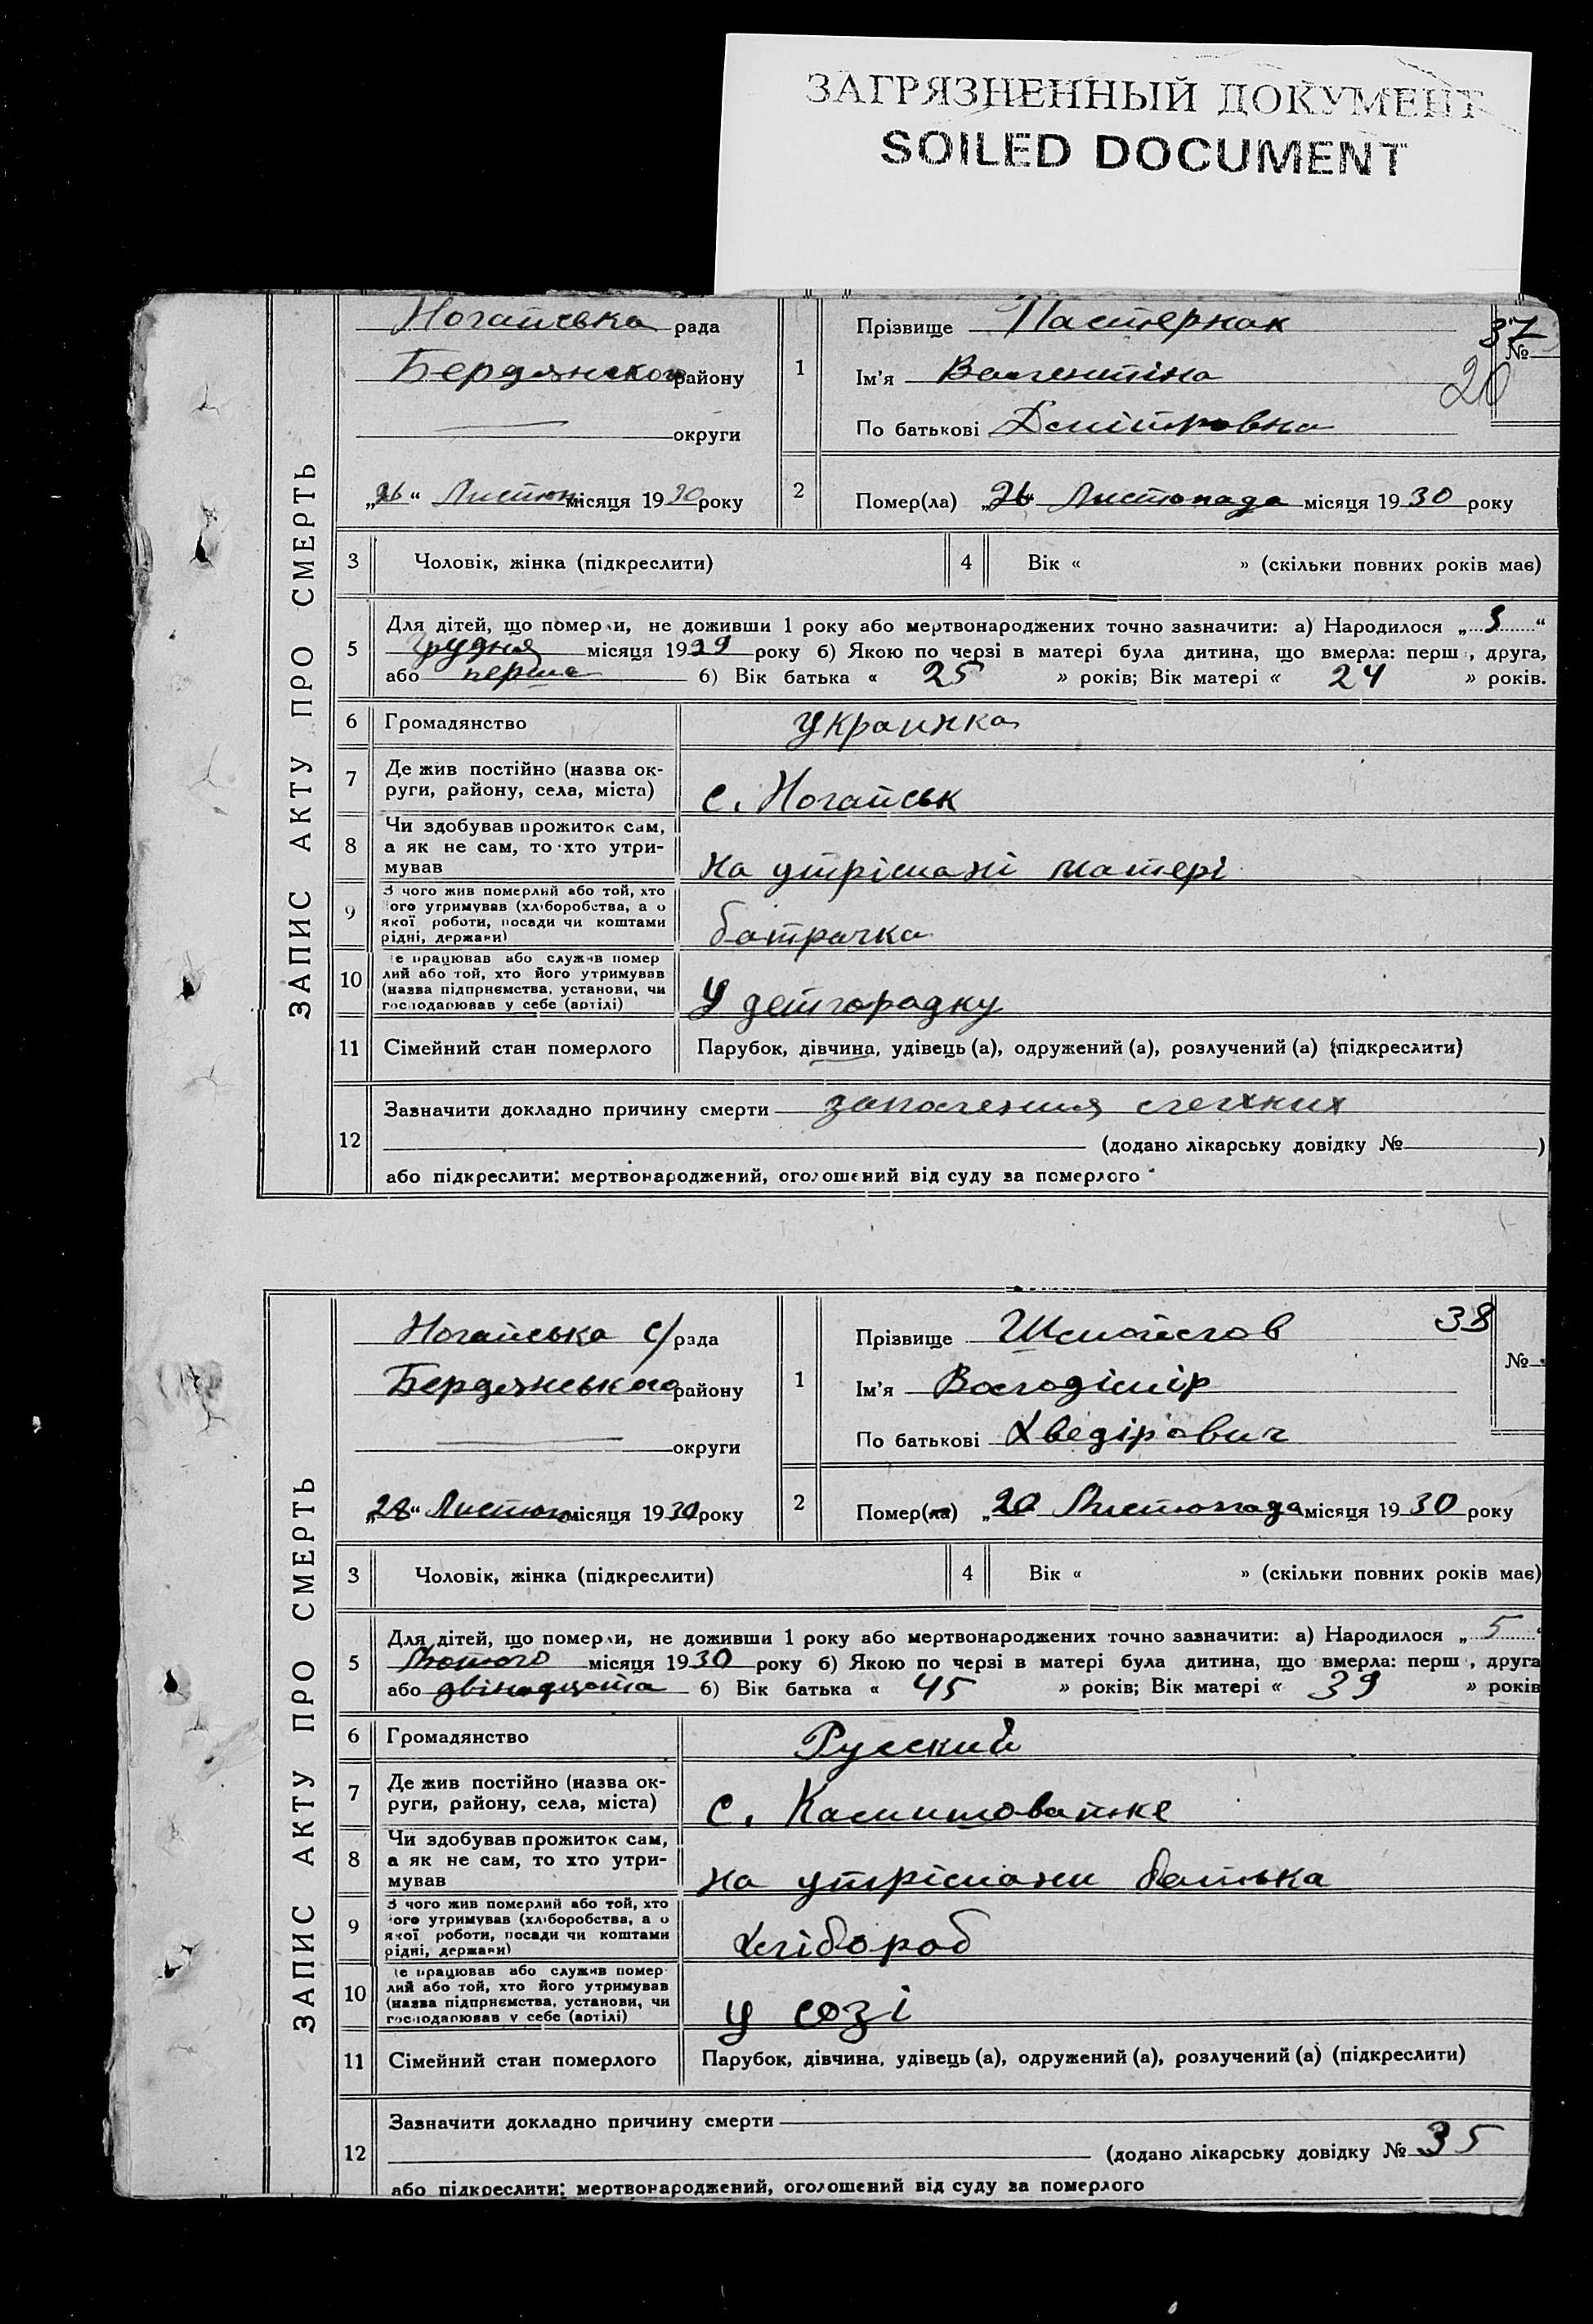 ЗАГРЯЗНЕННЫЙ ДОКУМЕНТ
SOILED DOCUMENT
ЗАПИС АКТУ ПРО СМЕРТЬ
Ногайська рада
Бердянског району
округи
„26“ Листоп місяця 1930 року
1
Прізвище Пастернак
37
№
Ім'я Валентіна
20
По батькові Дмітровна
2
Помер(ла) „26“ Листопада місяця 1930 року
3 Чоловік, жінка (підкреслити)
4 Вік « » (скільки повних років має)
5 Для дітей, що померли, не доживши 1 року або мертвонароджених точно зазначити: а) Народилося „3“
грудня місяця 1929 року б) Якою по черзі в матері була дитина, що вмерла: перш , друга,
або перша б) Вік батька « 25 » років; Вік матері « 24 » років.
6 Громадянство Украинка
7 Де жив постійно (назва ок-
руги, району, села, міста) с. Ногайськ
8 Чи здобував прожиток сам,
а як не сам, то хто утри-
мував на утрімані матері
9 З чого жив померлий або той, хто
ого утримував (хліборобства, а о
якої роботи, посади чи коштами
рідні, держави) батрачка
10 е працював або служив помер
лий або той, хто його утримував
(назва підприємства, установи, чи
господарював у себе (артілі) У детгородку
11 Сімейний стан померлого Парубок, дівчина, удівець (а), одружений (а), розлучений (а) (підкреслити)
12 Зазначити докладно причину смерти запаления легхних
(додано лікарську довідку № )
або підкреслити: мертвонароджений, оголошений від суду за померлого
ЗАПИС АКТУ ПРО СМЕРТЬ
Ногайська с/рада
Бердянського району
округи
„28“ Листоп місяця 1930 року
1
Прізвище Шмойлов
38
№
Ім'я Володімір
По батькові Хведірович
2
Помер(ла) „20 Листопада місяця 1930 року
3 Чоловік, жінка (підкреслити)
4 Вік « » (скільки повних років має)
5 Для дітей, що померли, не доживши 1 року або мертвонароджених точно зазначити: а) Народилося „5“
Лютого місяця 1930 року б) Якою по черзі в матері була дитина, що вмерла: перш , друга
або двінадцята б) Вік батька « 45 » років; Вік матері « 39 » років
6 Громадянство Русский
7 Де жив постійно (назва ок-
руги, району, села, міста) с. Камишоватке
8 Чи здобував прожиток сам,
а як не сам, то хто утри-
мував на утрімани батька
9 З чого жив померлий або той, хто
ого утримував (хліборобства, а о
якої роботи, посади чи коштами
рідні, держави) Хлібороб
10 е працював або служив помер
лий або той, хто його утримував
(назва підприємства, установи, чи
господарював у себе (артілі) у созі
11 Сімейний стан померлого Парубок, дівчина, удівець (а), одружений (а), розлучений (а) (підкреслити)
12 Зазначити докладно причину смерти
(додано лікарську довідку № 35
або підкреслити: мертвонароджений, оголошений від суду за померлого